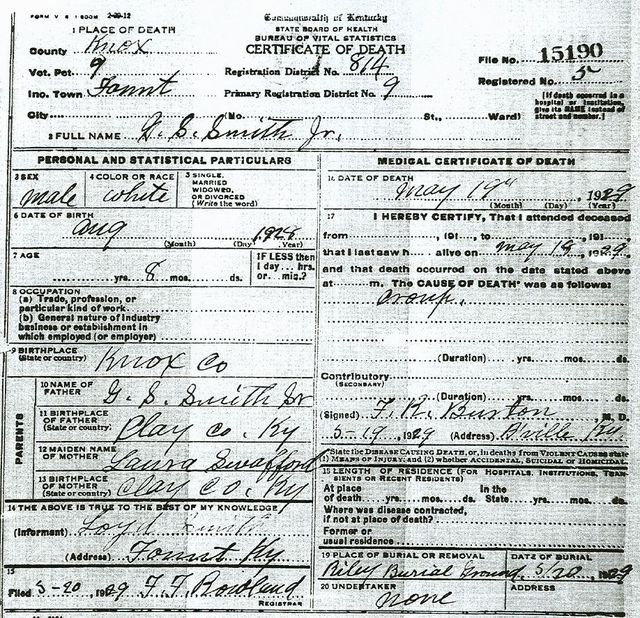 FORM V. S. 1 500M 2-29-12
Commonwealth of Kentucky
STATE BOARD OF HEALTH
BUREAU OF VITAL STATISTICS
CERTIFICATE OF DEATH
1 PLACE OF DEATH
County Knox
Vot. Pct 9
Inc. Town Fount
City
Registration District No. 814
Primary Registration District No. 9
(No. St., Ward)
File No. 15190
Registered No. 5
[If death occurred in a
hospital or institution,
give its NAME instead of
street and number.]
2 FULL NAME G. S. Smith Jr.
PERSONAL AND STATISTICAL PARTICULARS
3 SEX
male
4 COLOR OR RACE
white
5 SINGLE,
MARRIED
WIDOWED,
OR DIVORCED
(Write the word)
6 DATE OF BIRTH
Aug 1928
(Month) (Day) (Year)
7 AGE
yrs. 8 mos. ds.
IF LESS than
1 day... hrs.
or... min.?
8 OCCUPATION
(a) Trade, profession, or
particular kind of work.
(b) General nature of industry
business or establishment in
which employed (or employer)
9 BIRTHPLACE
(State or country)
Knox Co
PARENTS
10 NAME OF
FATHER
G. S. Smith Sr
11 BIRTHPLACE
OF FATHER
(State or country)
Clay Co. Ky
12 MAIDEN NAME
OF MOTHER
Laura Swafford
13 BIRTHPLACE
OF MOTHER
(State or country)
Clay Co. Ky
14 THE ABOVE IS TRUE TO THE BEST OF MY KNOWLEDGE
(Informant) Loyd Smith
(Address) Fount Ky
15
Filed 5-20, 1929 F. F. Rowland
REGISTRAR
MEDICAL CERTIFICATE OF DEATH
16 DATE OF DEATH
May 19th, 1929
(Month) (Day) (Year)
17 I HEREBY CERTIFY, That I attended deceased
from , 191 , to , 191 ,
that I last saw h alive on May 19, 1929
and that death occurred on the date stated above
at m. The CAUSE OF DEATH* was as follows:
Croup.
(Duration) yrs. mos. ds.
Contributory
(SECONDARY)
(Duration) yrs. mos. ds.
(Signed) F. R. Burton, M. D.
5-19 1929 (Address) B'ville Ky
*State the DISEASE CAUSING DEATH, or, in deaths from VIOLENT CAUSES state
(1) MEANS OF INJURY; and (2) whether ACCIDENTAL, SUICIDAL or HOMICIDAL.
18 LENGTH OF RESIDENCE (FOR HOSPITALS, INSTITUTIONS, TRANSIENTS OR RECENT RESIDENTS)
At place of death yrs. mos. ds. In the State yrs. mos. ds.
Where was disease contracted,
if not at place of death?
Former or
usual residence
19 PLACE OF BURIAL OR REMOVAL
Riley Burial Ground
DATE OF BURIAL
5/20, 1929
20 UNDERTAKER
none
ADDRESS